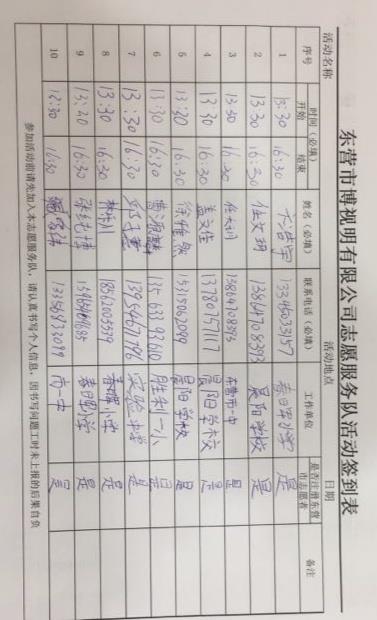 东营市博视明有限公司志愿服务队活动签到表
活动名称 活动地点 日期
序号 时间（必填） 姓名（必填） 联系电话（必填） 工作单位 是否注册东营市志愿者 备注
开始 结束
1 13:30 16:30 13345033157 春晖小学 是
2 13:30 16:30 任文玥 13864708393 晨阳学校 是
3 13:30 16:30 13864708393 东营市一中 是
4 13:30 16:30 盖文佳 13780767117 晨阳学校 是
5 13:30 16:30 徐雅然 15315062099 晨阳学校 是
6 13:30 16:30 13563393610 胜利一小 是
7 13:30 16:30 实验中学 是
8 13:30 16:30 18562003539 小学 是
9 13:30 16:30 春晖小学 是
10 13:30 16:30 13356633099 市一中 是
参加活动前请先加入本志愿服务队，请认真书写个人信息，因书写问题工时未上报的后果自负